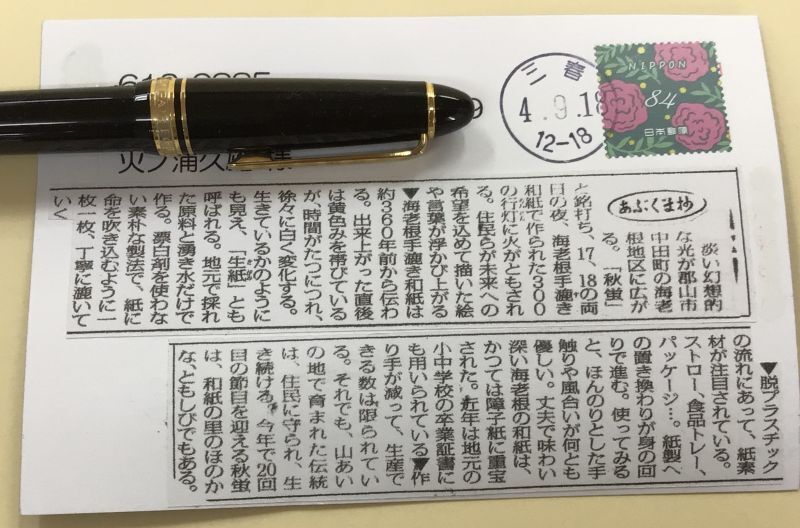 三春
4.9.18
12-18
NIPPON
84
日本郵便
あぶくま抄
淡い幻想的
な光が郡山市
中田町の海老
根地区に広が
る。「秋蛍」
と銘打ち、17、18の両
日の夜、海老根手漉き
和紙で作られた300
の行灯に火がともされ
る。住民らが未来への
希望を込めて描いた絵
や言葉が浮かび上がる
▼海老根手漉き和紙は
約360年前から伝わ
る。出来上がった直後
は黄色みを帯びている
が、時間がたつにつれ、
徐々に白く変化する。
生きているかのように
も見え、「生紙」とも
呼ばれる。地元で採れ
た原料と湧き水だけで
作る。漂白剤を使わな
い素朴な製法で、紙に
命を吹き込むように一
枚一枚、丁寧に漉いて
いく
▼脱プラスチック
の流れにあって、紙素
材が注目されている。
ストロー、食品トレー、
パッケージ…。紙製へ
の置き換わりが身の回
りで進む。使ってみる
と、ほんのりとした手
触りや風合いが何とも
優しい。丈夫で味わい
深い海老根の和紙は、
かつては障子紙に重宝
された。近年は地元の
小中学校の卒業証書に
も用いられている▼作
り手が減って、生産で
きる数は限られてい
る。それでも、山あい
の地で育まれた伝統
は、住民に守られ、生
き続ける。今年で20回
目の節目を迎える秋蛍
は、和紙の里のほのか
な、ともしびでもある。